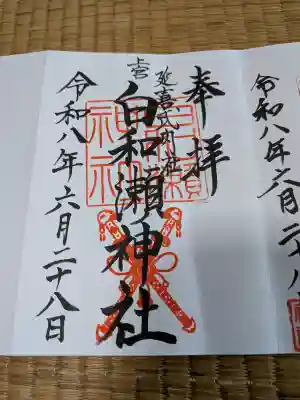 奉拝
延喜式内社
上宮
白和瀬神社
令和八年六月二十八日
令和八年六月二十八